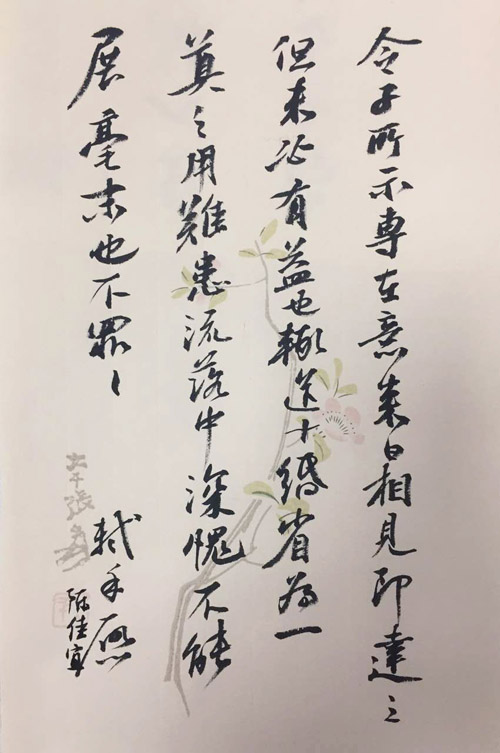 令子所示専在意來日相見即達之
但未必有益也輒送十縑省為一
奠之用難患流落中深愧不能
展毫末也不罪〻
軾手啟
陈佳宜
大千張爰